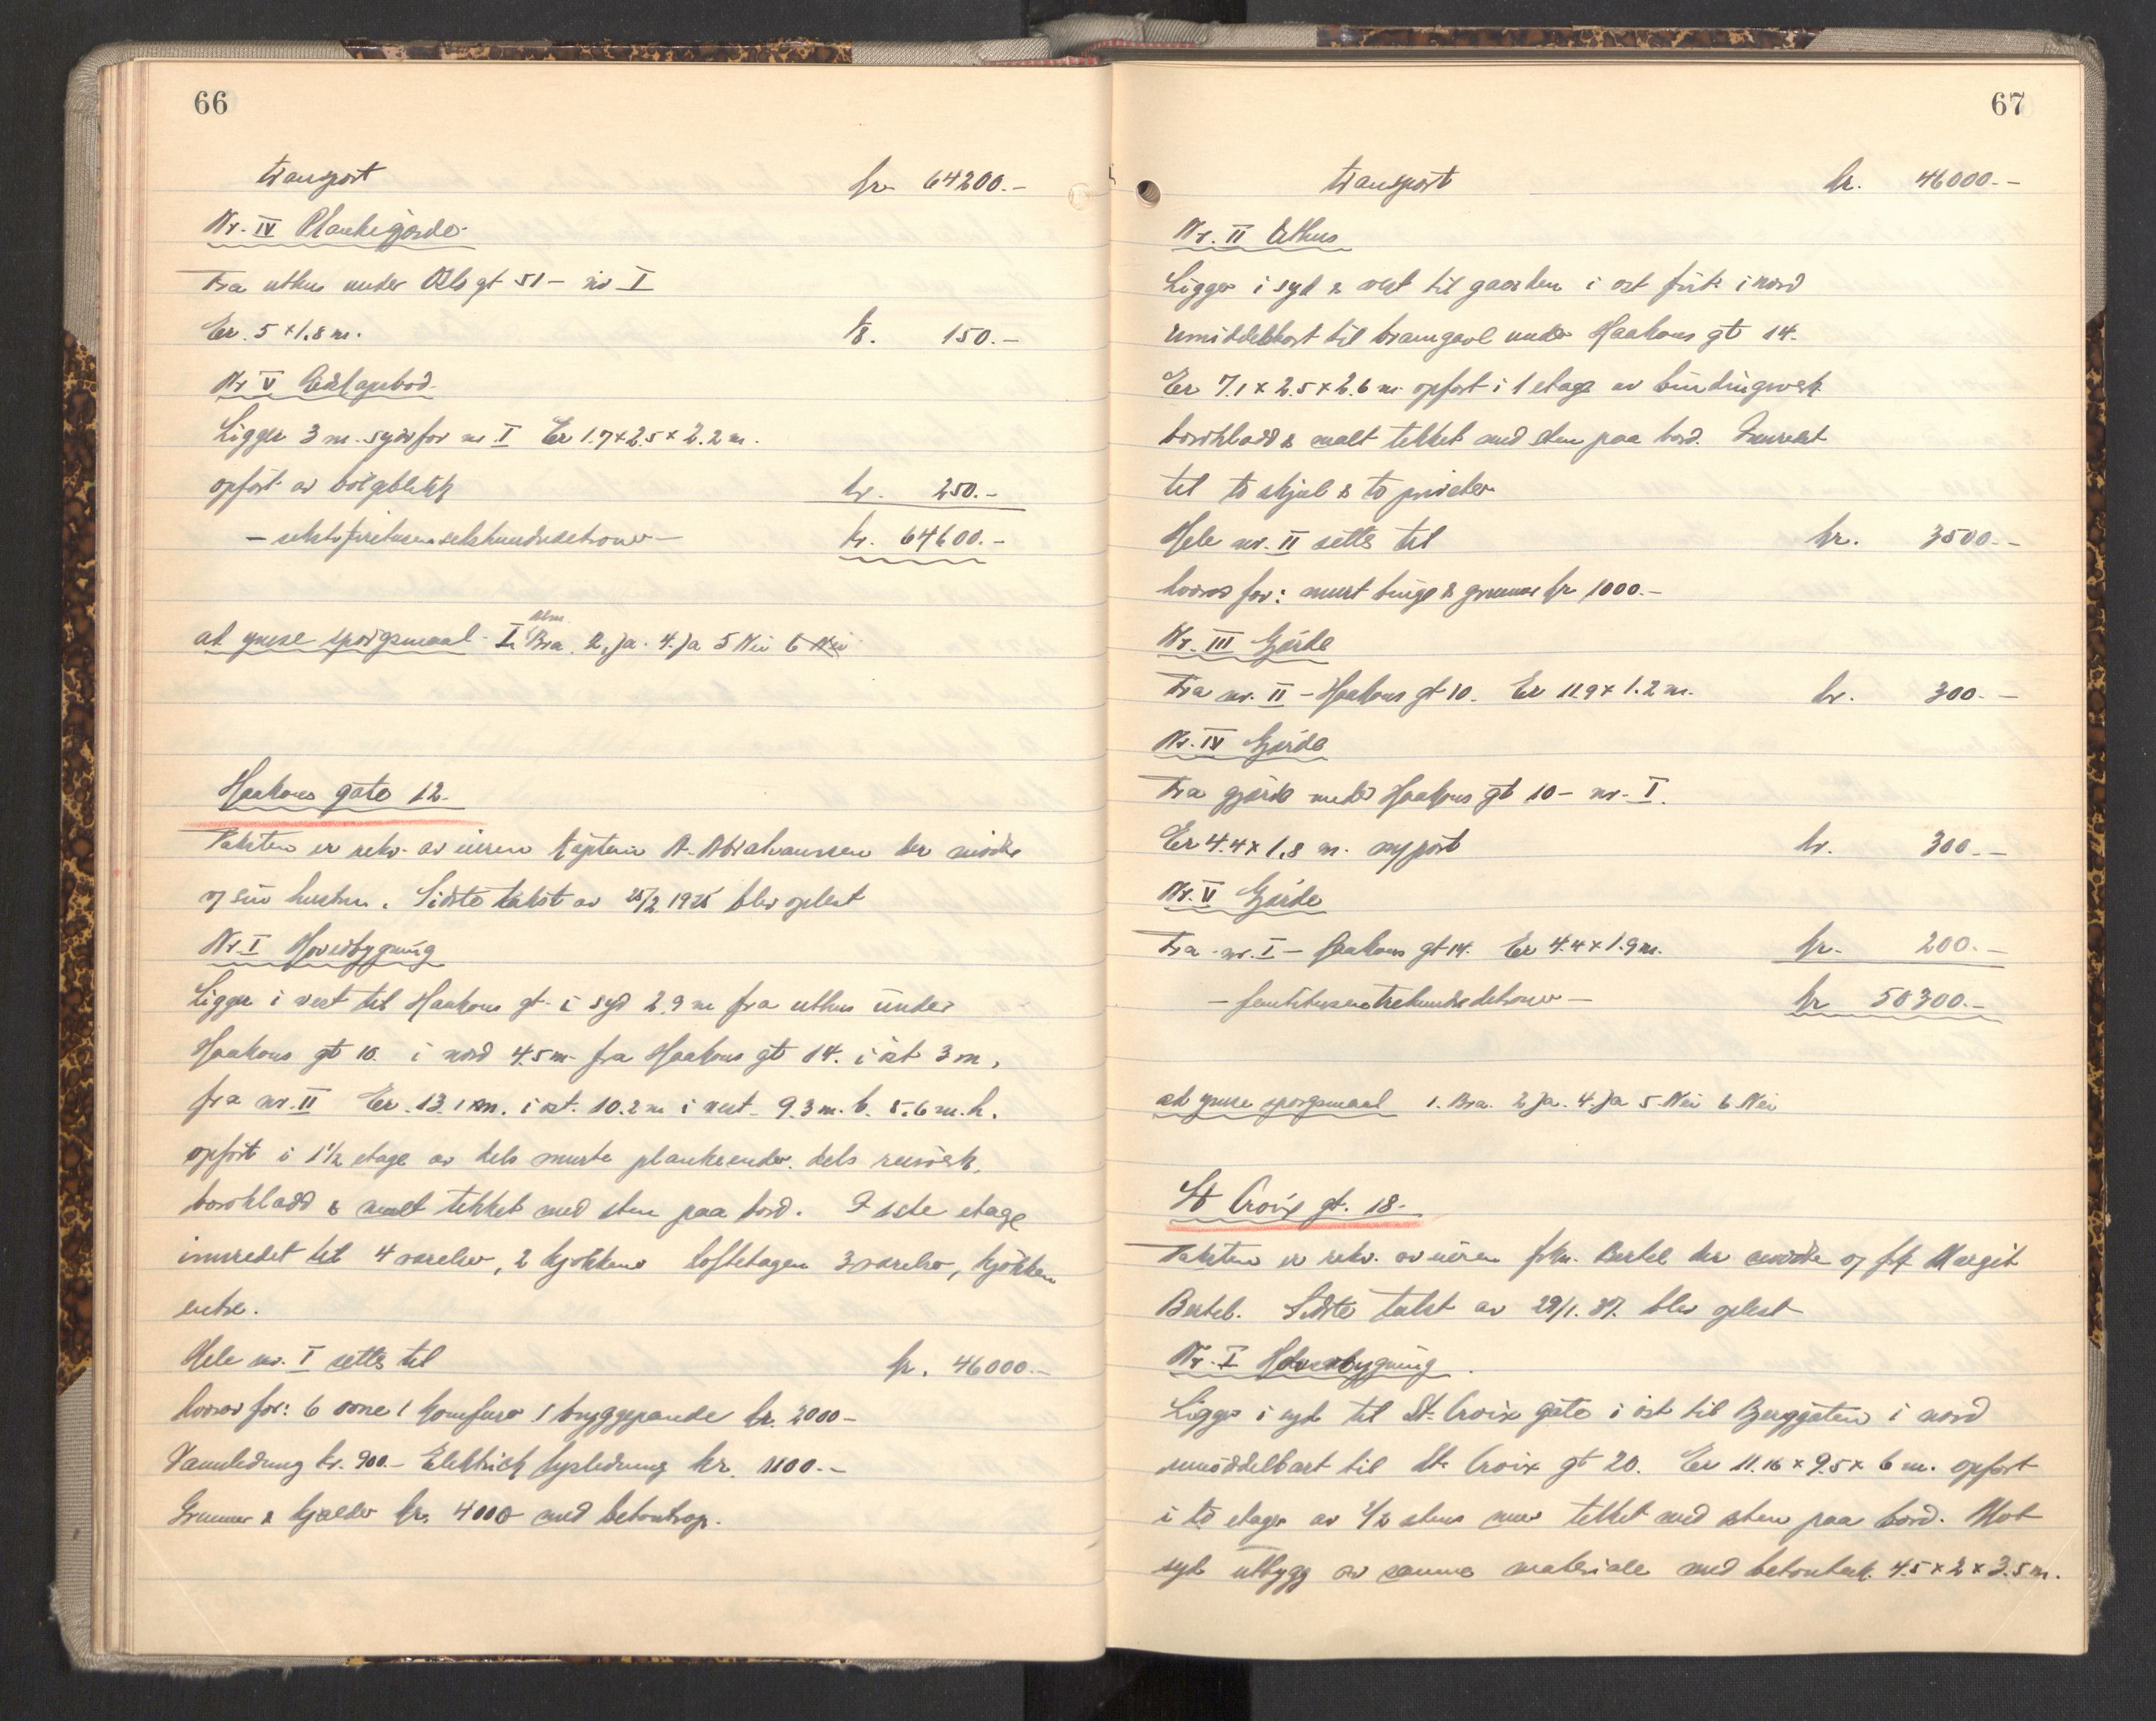 66
transport kr 64200.-
Nr. IV Plankegjærde
Fra uthus under Olsgt 51 - nr I
Er 5 x 1.8 m. kr. 150.-
Nr V Redskapsbod
Ligger 3 m. syd for nr. I Er 1.7 x 2.5 x 2.2 m.
opført av bølgeblikk kr. 250.-
- sekstifiretusensekshundredekroner - kr. 64600.-
ad gnere spørgsmaal I. Alm. Bra. 2. ja. 4. ja 5 Nei 6 Nei
Haakons gate 12.
Taksten er rekv. av eieren kaptein A. Abrahamsen der møtte
og sin hustru. Sidste takst av 25/2 1925 blev oplest
Nr. I Hovedbygning
Ligger i vest til Haakons gt. i syd 2.9 m fra uthus under
Haakons gt 10. i nord 4.5 m fra Haakons gt 14. i øst 3 m.
fra nr. II Er 13.1 m. i øst. 10.2 m i vest 9.3 m. b. 5.6 m. h.
opført i 1 1/2 etage av dels murte plankeender. dels reisverk.
bordkladd & malt tekket med sten paa bord. I ste etage
innredet til 4 værelser, 2 kjøkkener loftetagen 3 værelser, kjøkken
entre.
Hele nr. I settes til kr. 46000.-
hvorav for: 6 ovne 1 komfure 1 bryggepande kr. 2000-
Vannledning kr. 900.- Elektrisk lysledning kr. 1100.-
Grunmur & kjælder kr. 4000 med betontrap.
67
transport kr. 46000.-
Nr. II Uthus
Ligger i syd & vest til gaarden i øst frit i nord
umiddelbart til brangavl under Haakons gt 14.
Er 7.1 x 2.5 x 2.6 m opført i 1 etage av bindingsverk
bordkladd & malt tekket med sten paa bord. Innredet
til to skjul & to priveter
Hele nr. II settes til kr. 3500.-
hvorav for: murt binge & grunmur kr 1000.-
Nr. III Gjærde
Fra nr. II - Haakons gt 10. Er 11.9 x 1.2 m. kr. 300.-
Nr. IV Gjærde
Fra gjærde under Haakons gt 10 - nr. I.
Er 4.4 x 1.8 m. m/port kr. 300.-
Nr. V Gjærde
Fra nr. I - Haakons gt 14. Er 4.4 x 1.9 m. kr. 200.-
- femtitusentrehundredekroner - kr 50300.-
ad gnere spørgsmaal 1. Bra. 2 ja. 4. ja 5 Nei 6 Nei
St Croix gt. 18.
Taksten er rekv. av eieren frkn. Bertel der møtte og frk Margit
Bertel. Sidste takst av 29/1. 37. blev oplest
Nr. I Hovedbygning
Ligger i syd til St. Croix gate i øst til Berggaten i nord
umiddelbart til St. Croix gt 20. Er 11.16 x 9.5 x 6 m. opført
i to etager av 1/2 stens mur tekket med sten paa bord. Mot
syd utbygg av samme materiale med betontak 4.5 x 2 x 3.5 m.